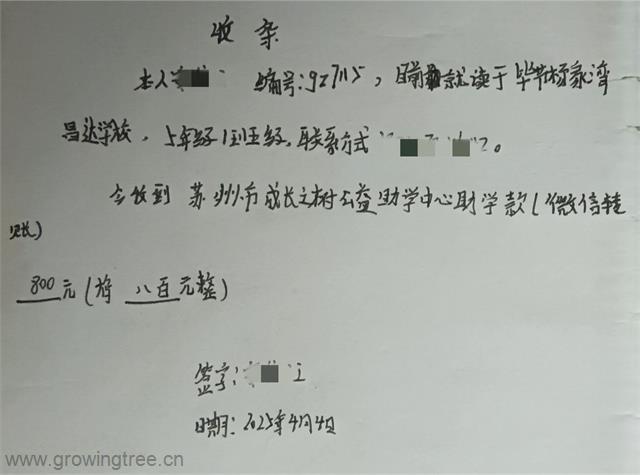 收条
本人 编号:927115，目前就读于毕节杨家湾
昌达学校，5年级1班班级，联系方式 。
今收到 苏州市成长之树公益助学中心助学款(微信转
账)
800元(大写 八百元整)
签字:
日期: 2025年4月4日
www.growingtree.cn